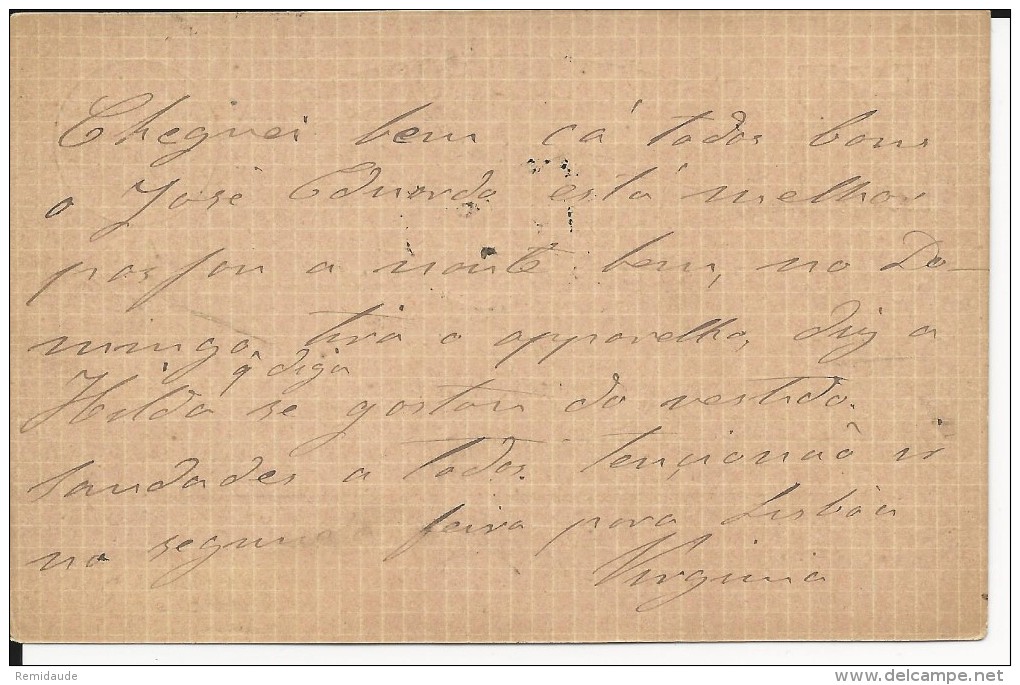 Cheguei bem cá todos bons
o José Eduardo está melhor
passou a noute bem, no Do-
mingo tira o apparelho, diz a
q diga
Hilda se gostou do vestido.
Saudades a todos. tencionão ir
na segunda feira para Lisboa
Virginia
Remidaude
www.delcampe.net